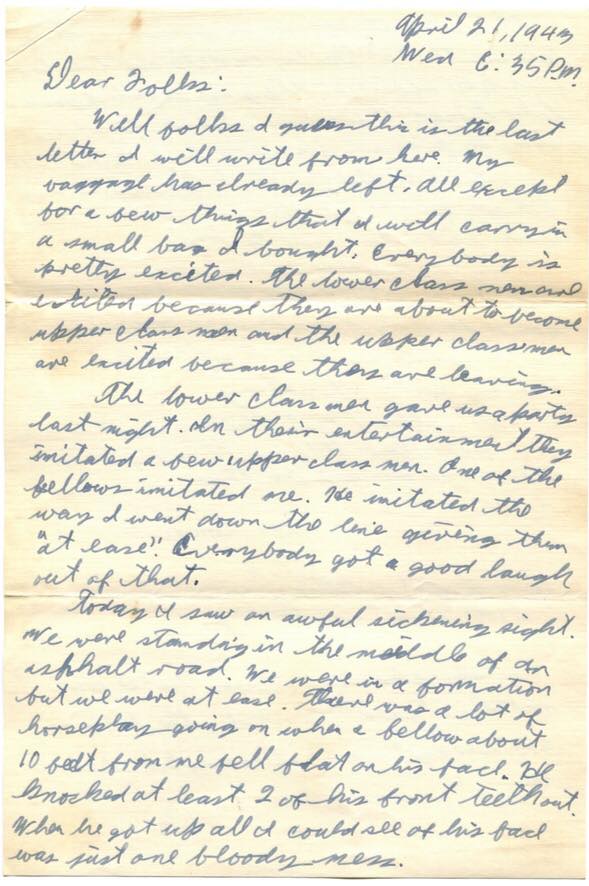 April 21, 1943
Wed 6:35 P.M.
Dear Folks:
Well folks I guess this is the last
letter I will write from here. My
baggage has already left. All except
for a few things that I will carry in
a small bag I bought. Everybody is
pretty excited. The lower class men are
excited because they are about to become
upper class men and the upper classmen
are excited because they are leaving.
The lower class men gave us a party
last night. In their entertainment they
imitated a few upper class men. One of the
fellows imitated me. He imitated the
way I went down the line giving them
"at ease". Everybody got a good laugh
out of that.
Today I saw an awful sickening sight.
We were standing in the middle of an
asphalt road. We were in a formation
but we were at ease. There was a lot of
horseplay going on when a fellow about
10 feet from me fell flat on his face. He
knocked at least 2 of his front teeth out.
When he got up all I could see of his face
was just one bloody mess.